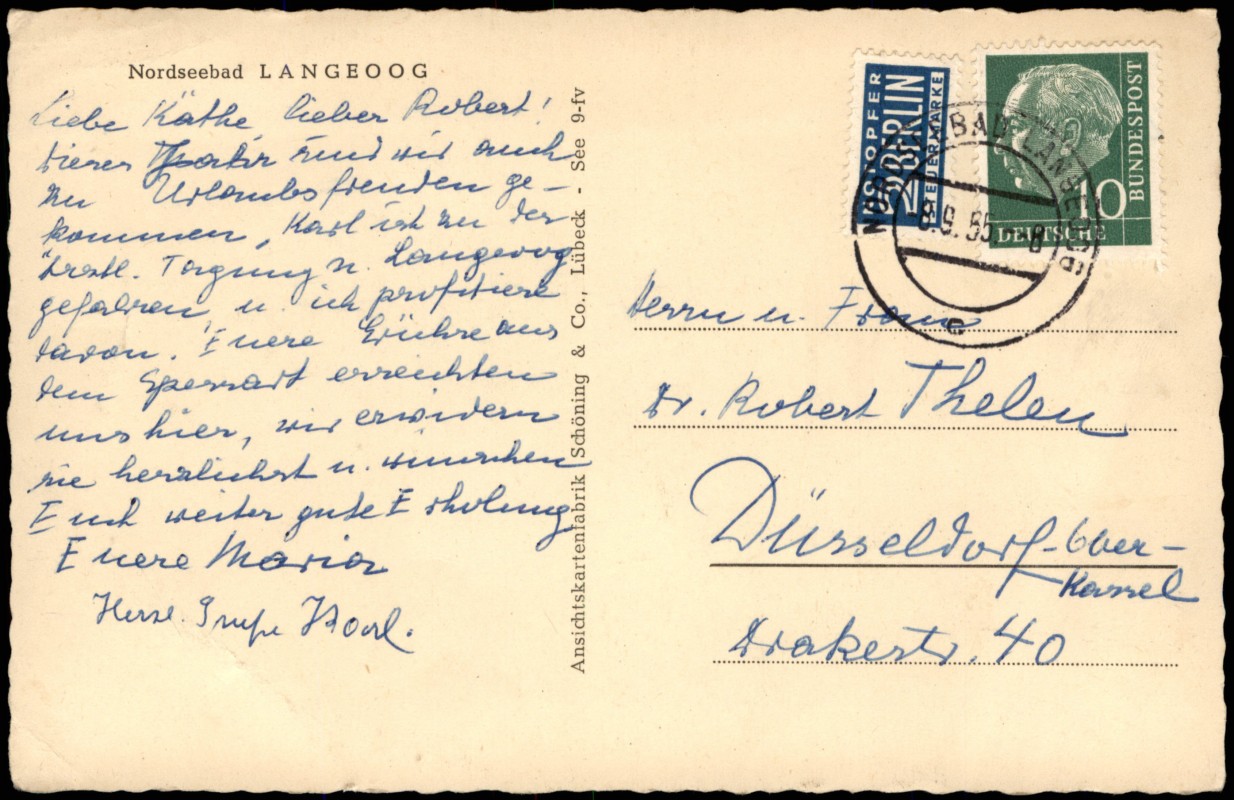 Nordseebad LANGEOOG
Liebe Käthe, lieber Robert!
Dieses Jahr sind wir auch
zu Urlaubsfreuden ge-
kommen, Karl ist zu der
Ärztl. Tagung n. Langeoog
gefahren u. ich profitiere
davon. Euere Grüße aus
dem Spessart erreichten
uns hier, wir erwidern
sie herzlichst u. wünschen
Euch weiter gute Erholung
Euere Maria
Herzl. Grüße Karl.
Ansichtskartenfabrik Schöning & Co., Lübeck - See 9-fv
NOTOPFER
2 BERLIN
STEUERMARKE
DEUTSCHE
BUNDESPOST
10
NORDSEEBAD LANGEOOG
-8.9.55.-8
e
Herrn u. Frau
Dr. Robert Thelen
Düsseldorf-Ober-
Kassel
Drakestr. 40